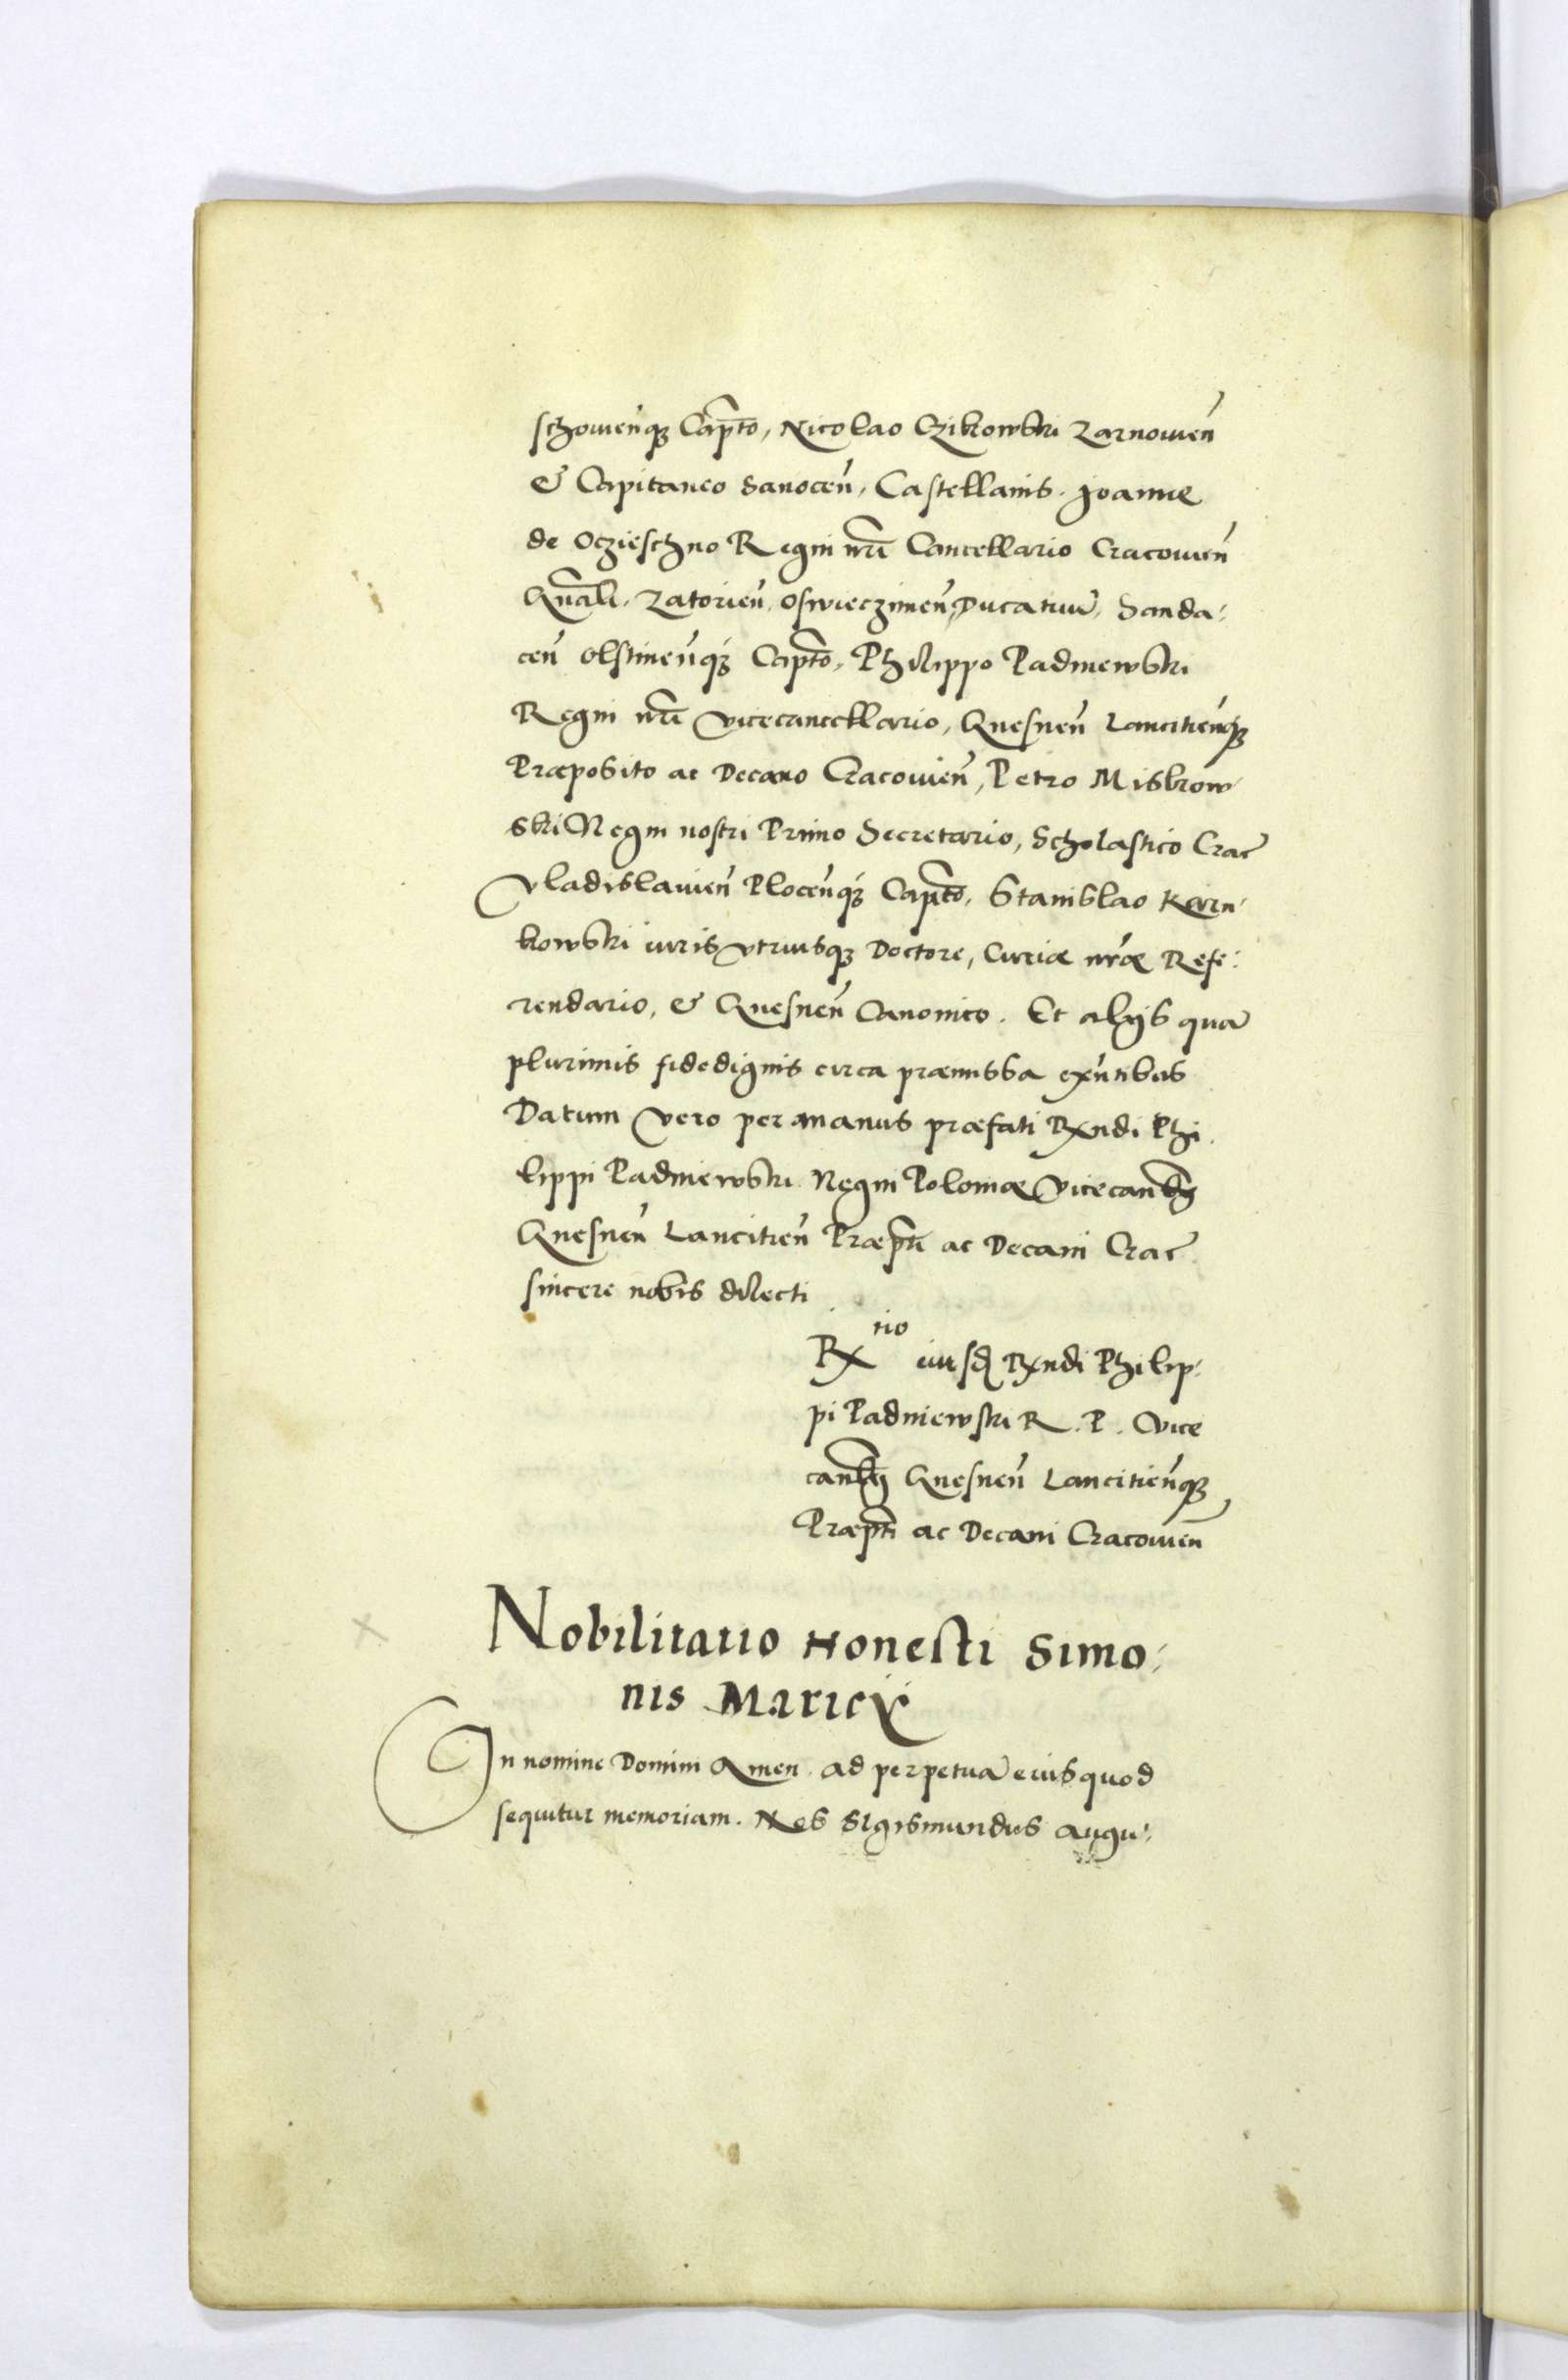 schovieñqꝫ Capt̃o, Nicolao Czikowski Zarnovieñ
& Capitaneo Sanoceñ, Castellanis. Joanne
de Oczieschno Regni nr̃i Cancellario Cracovieñ
Gñali. Zatorieñ, Oswieczimeñ, Ducatuũ, Sanda:
ceñ Olstineñqꝫ Capt̃o, Philippo Padniewski
Regni nr̃i Vicecancellario, Gnesneñ Lancitieñqꝫ
Præposito ac Decano Cracovieñ, Petro Miskow
ski Regni nostri Primo Secretario, Scholastico Crac̃
Vladislavieñ Ploceñqꝫ Capt̃o, Stanislao Karn
kowski iuris vtriusqꝫ Doctore, Curiæ nr̃æ Refe:
rendario, & Gnesneñ Canonico. Et alijs quã
plurimis fidedignis circa præmissa exñtibus
Datum vero per manus præfati Rx̃ndi Phi
lippi Padniewski Regni Poloniæ Vicecanc̃ij
Gnesneñ Lancitieñ Præpt̃i ac Decani Crac̃
sincere nobis dilecti
Rx tio eiusdꝫ Rx̃ndi Philip:
pi Padniewski R. P. Vice
canc̃ij Gnesneñ Lancitieñqꝫ
Præpt̃i ac Decani Cracovieñ
Nobilitatio Honesti Simo:
nis Maricÿ
In nomine Domini Amen. Ad perpetuã eius quod
sequitur memoriam. Nos Sigismundus Augu: